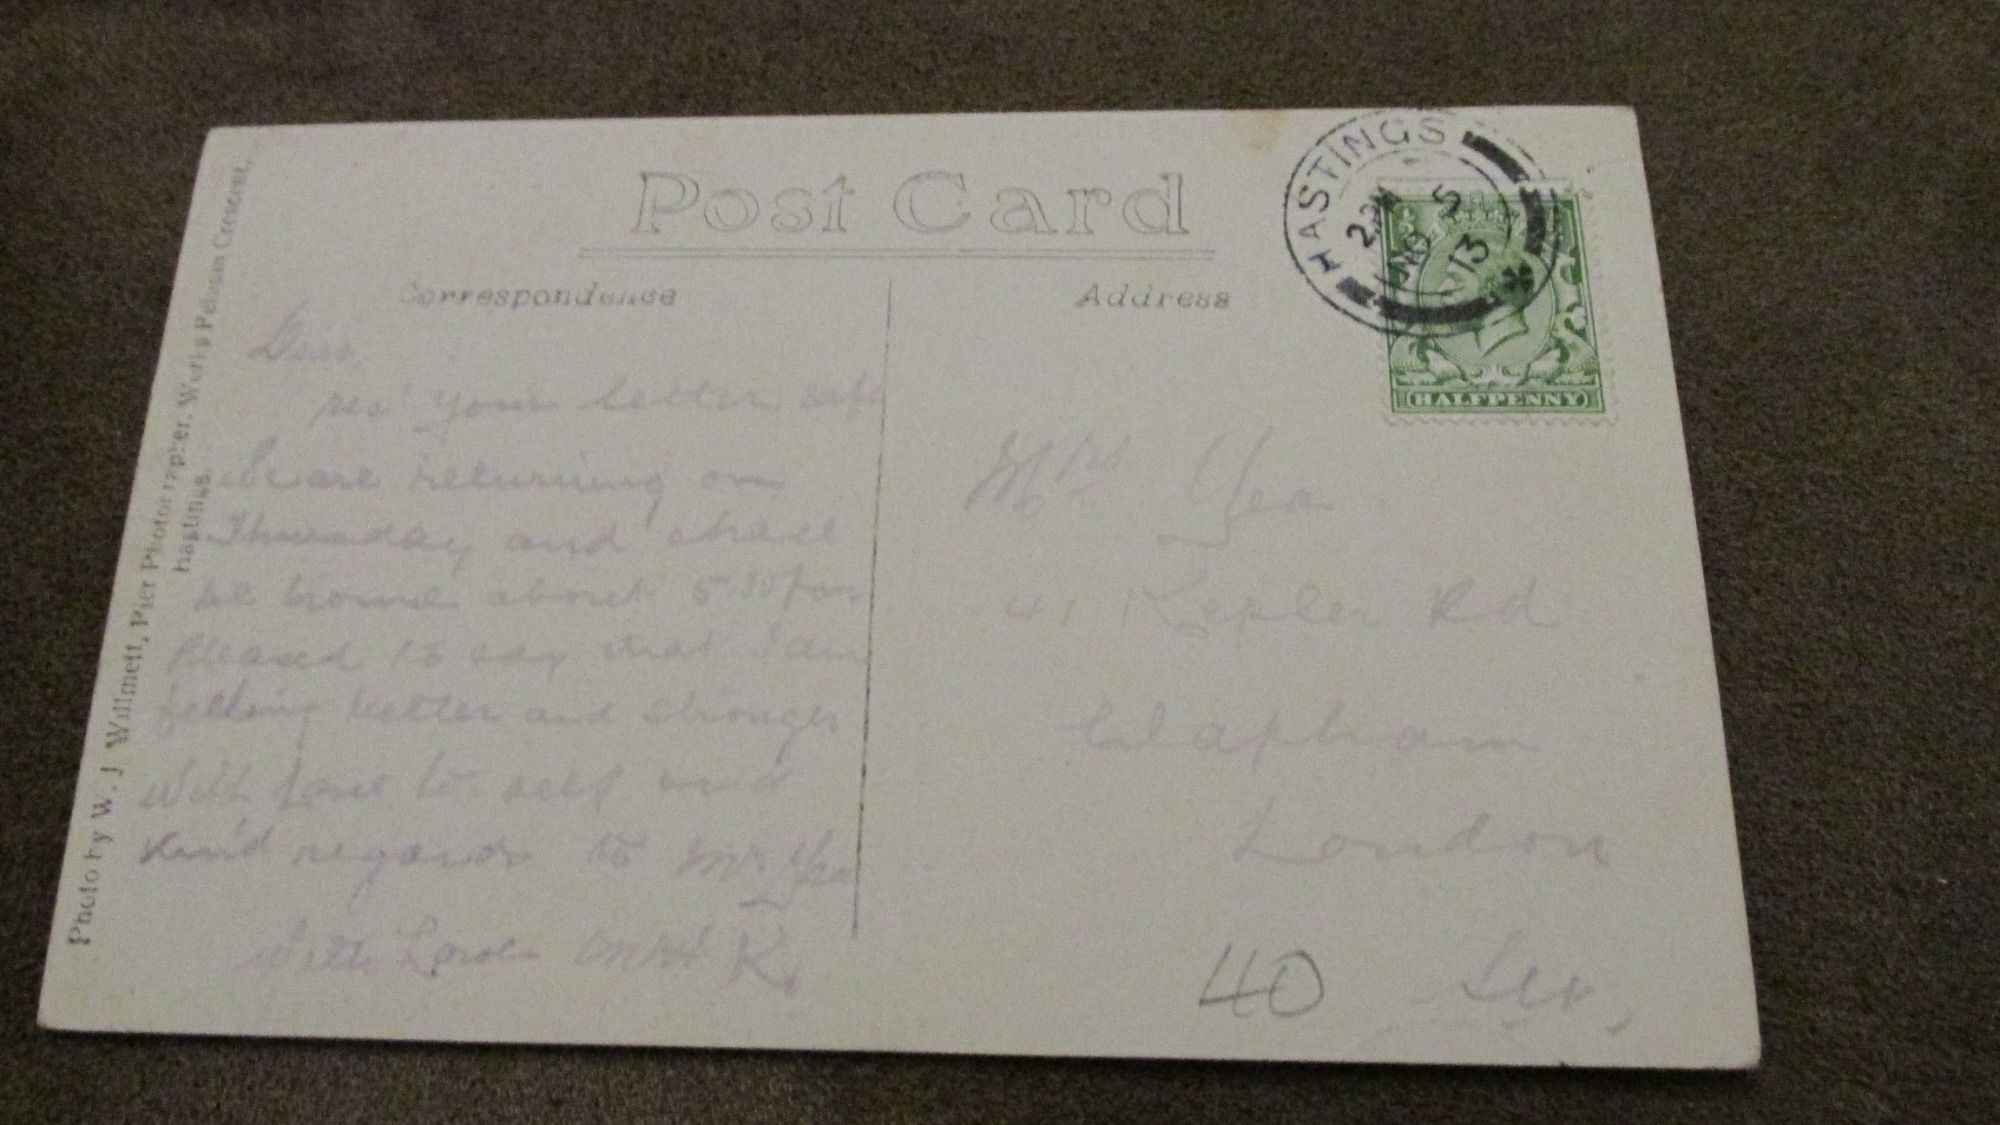 Post Card
Correspondence
Address
HASTINGS
2. PM
NO 5
13
HALFPENNY
Photo by W. J Willmett, Pier Photographer. Works Pelham Crescent,
hastings.
Dear,
rec'd your letter safe
We are returning on
Thursday and shall
be home about 5.30 pm.
Pleased to say that I am
feeling better and stronger
With love to self and
kind regards to Mr Yea
With Love K.
Mrs Yea
41 Kepler Rd
Clapham
London
40